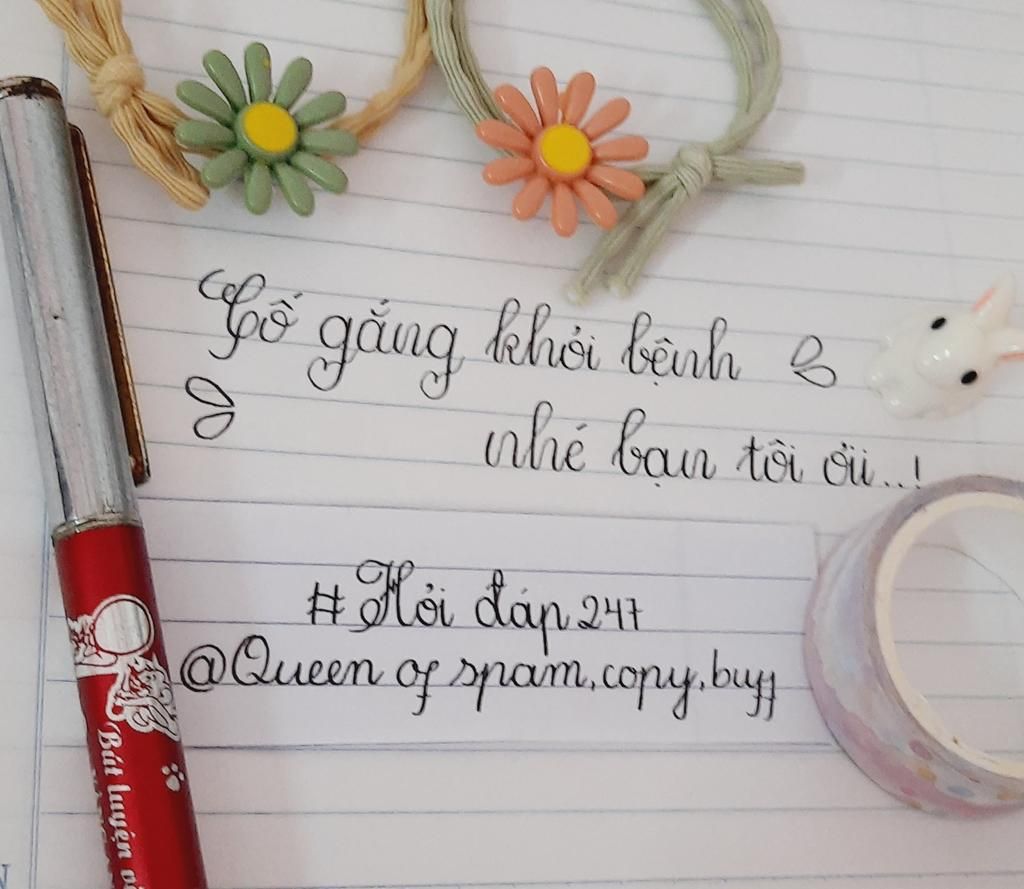 Cố gắng khỏi bệnh
nhé bạn tôi ơii..!
#Hỏi đáp 247
@Queen of spam,copy,buff
Bút luyện